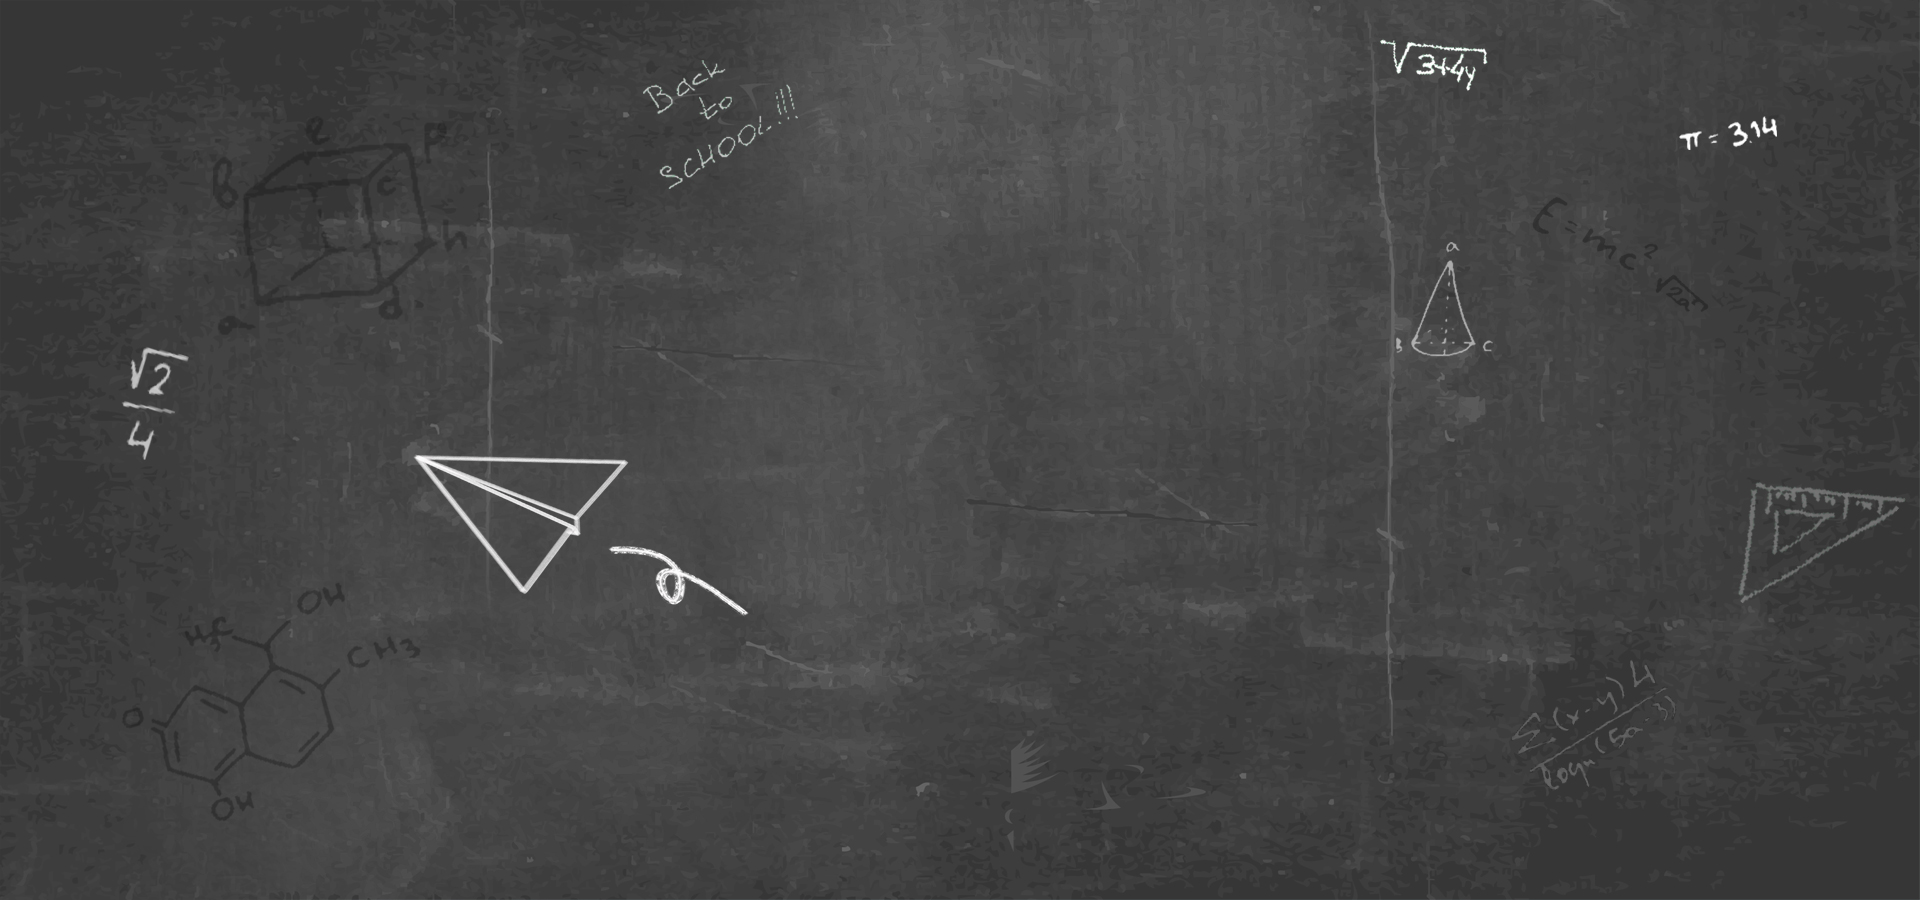 Back
to
SCHOOL!!!
√3+4y
π = 3.14
e
p
B
c
h
a
d
E=mc²
√2a
a
B
c
√2
4
OH
H₃C
CH3
O
OH
Σ(x-y)4